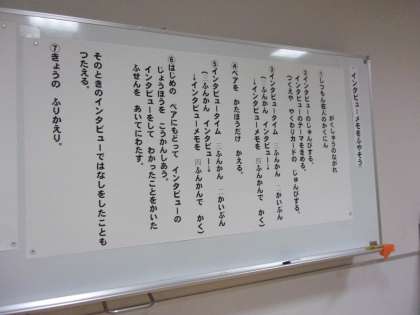 インタビューメモをふやそう
がくしゅうのながれ
①しつもん名人のかくにん
②インタビューのじゅんびする。
インタビューのテーマをきめる。
つくえや やくわりカードの じゅんびする。
③インタビュータイム 三ふんかん 二かいぶん
（三ふんかん インタビュー→
→インタビューメモを 四ふんかんで かく）
④ペアを かたほうだけ かえる。
⑤インタビュータイム 三ふんかん 二かいぶん
（三ふんかん インタビュー→
→インタビューメモを 四ふんかんで かく）
⑥はじめの ペアにもどって インタビューの
じょうほうを こうかんしあう。
インタビューをして わかったことをかいた
ふせんを あいてにわたす。
そのときのインタビューではなしをしたことも
つたえる。
⑦きょうの ふりかえり。